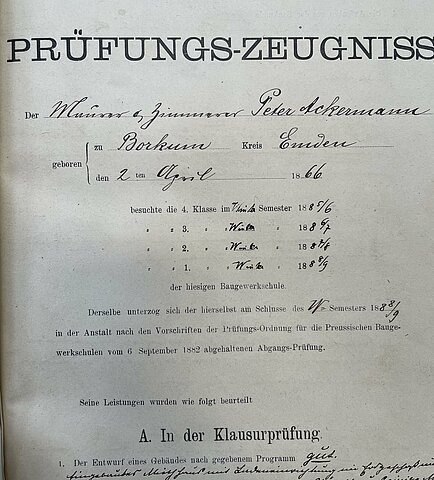 PRÜFUNGS-ZEUGNISS
Der Maurer & Zimmerer Peter Ackermann
zu Borkum Kreis Emden
geboren
den 2 ten April 1866
besuchte die 4. Klasse im Winter Semester 1885/6
" " 3. " " Winter " 1886/7
" " 2. " " Winter " 1887/8
" " 1. " " Winter " 1888/9
der hiesigen Baugewerkschule.
Derselbe unterzog sich der hierselbst am Schlusse des W Semesters 1888/9
in der Anstalt nach den Vorschriften der Prüfungs-Ordnung für die Preussischen Bauge-
werkschulen vom 6 September 1882 abgehaltenen Abgangs-Prüfung.
Seine Leistungen wurden wie folgt beurteilt
A. In der Klausurprüfung.
1. Der Entwurf eines Gebäudes nach gegebenem Programm gut.
Eingebautes Miethhaus mit Ladeneinrichtung im Erdgeschoß